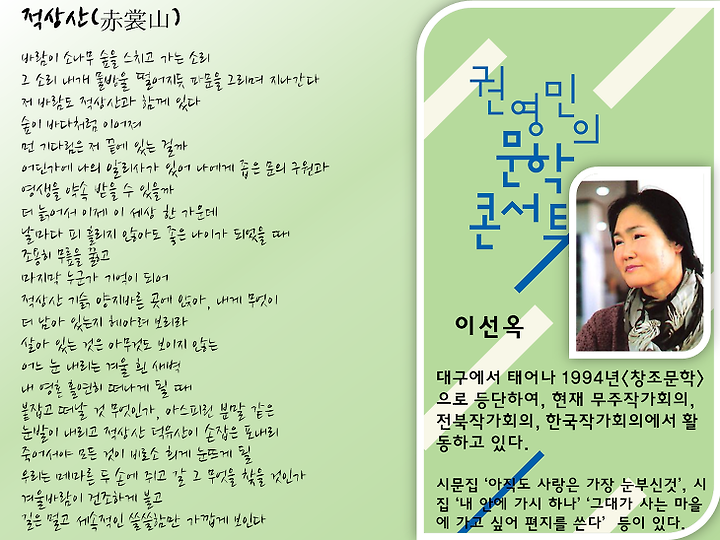 적상산(赤裳山)
바람이 소나무 숲을 스치고 가는 소리
그 소리 내게 물방울 떨어지듯 파문을 그리며 지나간다
저 바람도 적상산과 함께 있다
숲이 바다처럼 이어져
먼 기다림은 저 끝에 있는 걸까
어딘가에 나의 알리사가 있어 나에게 좁은 문의 구원과
영생을 약속 받을 수 있을까
더 늙어서 이제 이 세상 한 가운데
날마다 피 흘리지 않아도 좋은 나이가 되었을 때
조용히 무릎을 꿇고
마지막 누군가 기억이 되어
적상산 기슭 양지바른 곳에 앉아, 내게 무엇이
더 남아 있는지 헤아려 보리라
살아 있는 것은 아무것도 보이지 않는
어느 눈 내리는 겨울 흰 새벽
내 영혼 홀연히 떠나게 될 때
붙잡고 떠날 것 무엇인가, 아스피린 분말 같은
눈발이 내리고 적상산 덕유산이 손잡은 포내리
죽어서야 모든 것이 비로소 희게 눈뜨게 될
우리는 메마른 두 손에 쥐고 갈 그 무엇을 찾을 것인가
겨울바람이 건조하게 불고
길은 멀고 세속적인 쓸쓸함만 가깝게 보인다
권영민의
문학
콘서트
이선옥
대구에서 태어나 1994년<창조문학>
으로 등단하여, 현재 무주작가회의,
전북작가회의, 한국작가회의에서 활
동하고 있다.
시문집 ‘아직도 사랑은 가장 눈부신것’, 시
집 ‘내 안에 가시 하나’ ‘그대가 사는 마을
에 가고 싶어 편지를 쓴다’ 등이 있다.